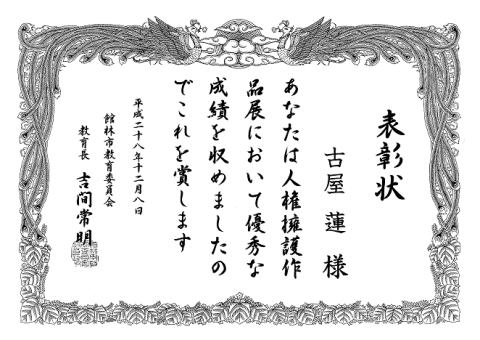 表彰状
古屋 蓮 様
あなたは人権擁護作
品展において優秀な
成績を収めましたの
でこれを賞します
平成二十八年十二月八日
館林市教育委員会
教育長 吉間常明